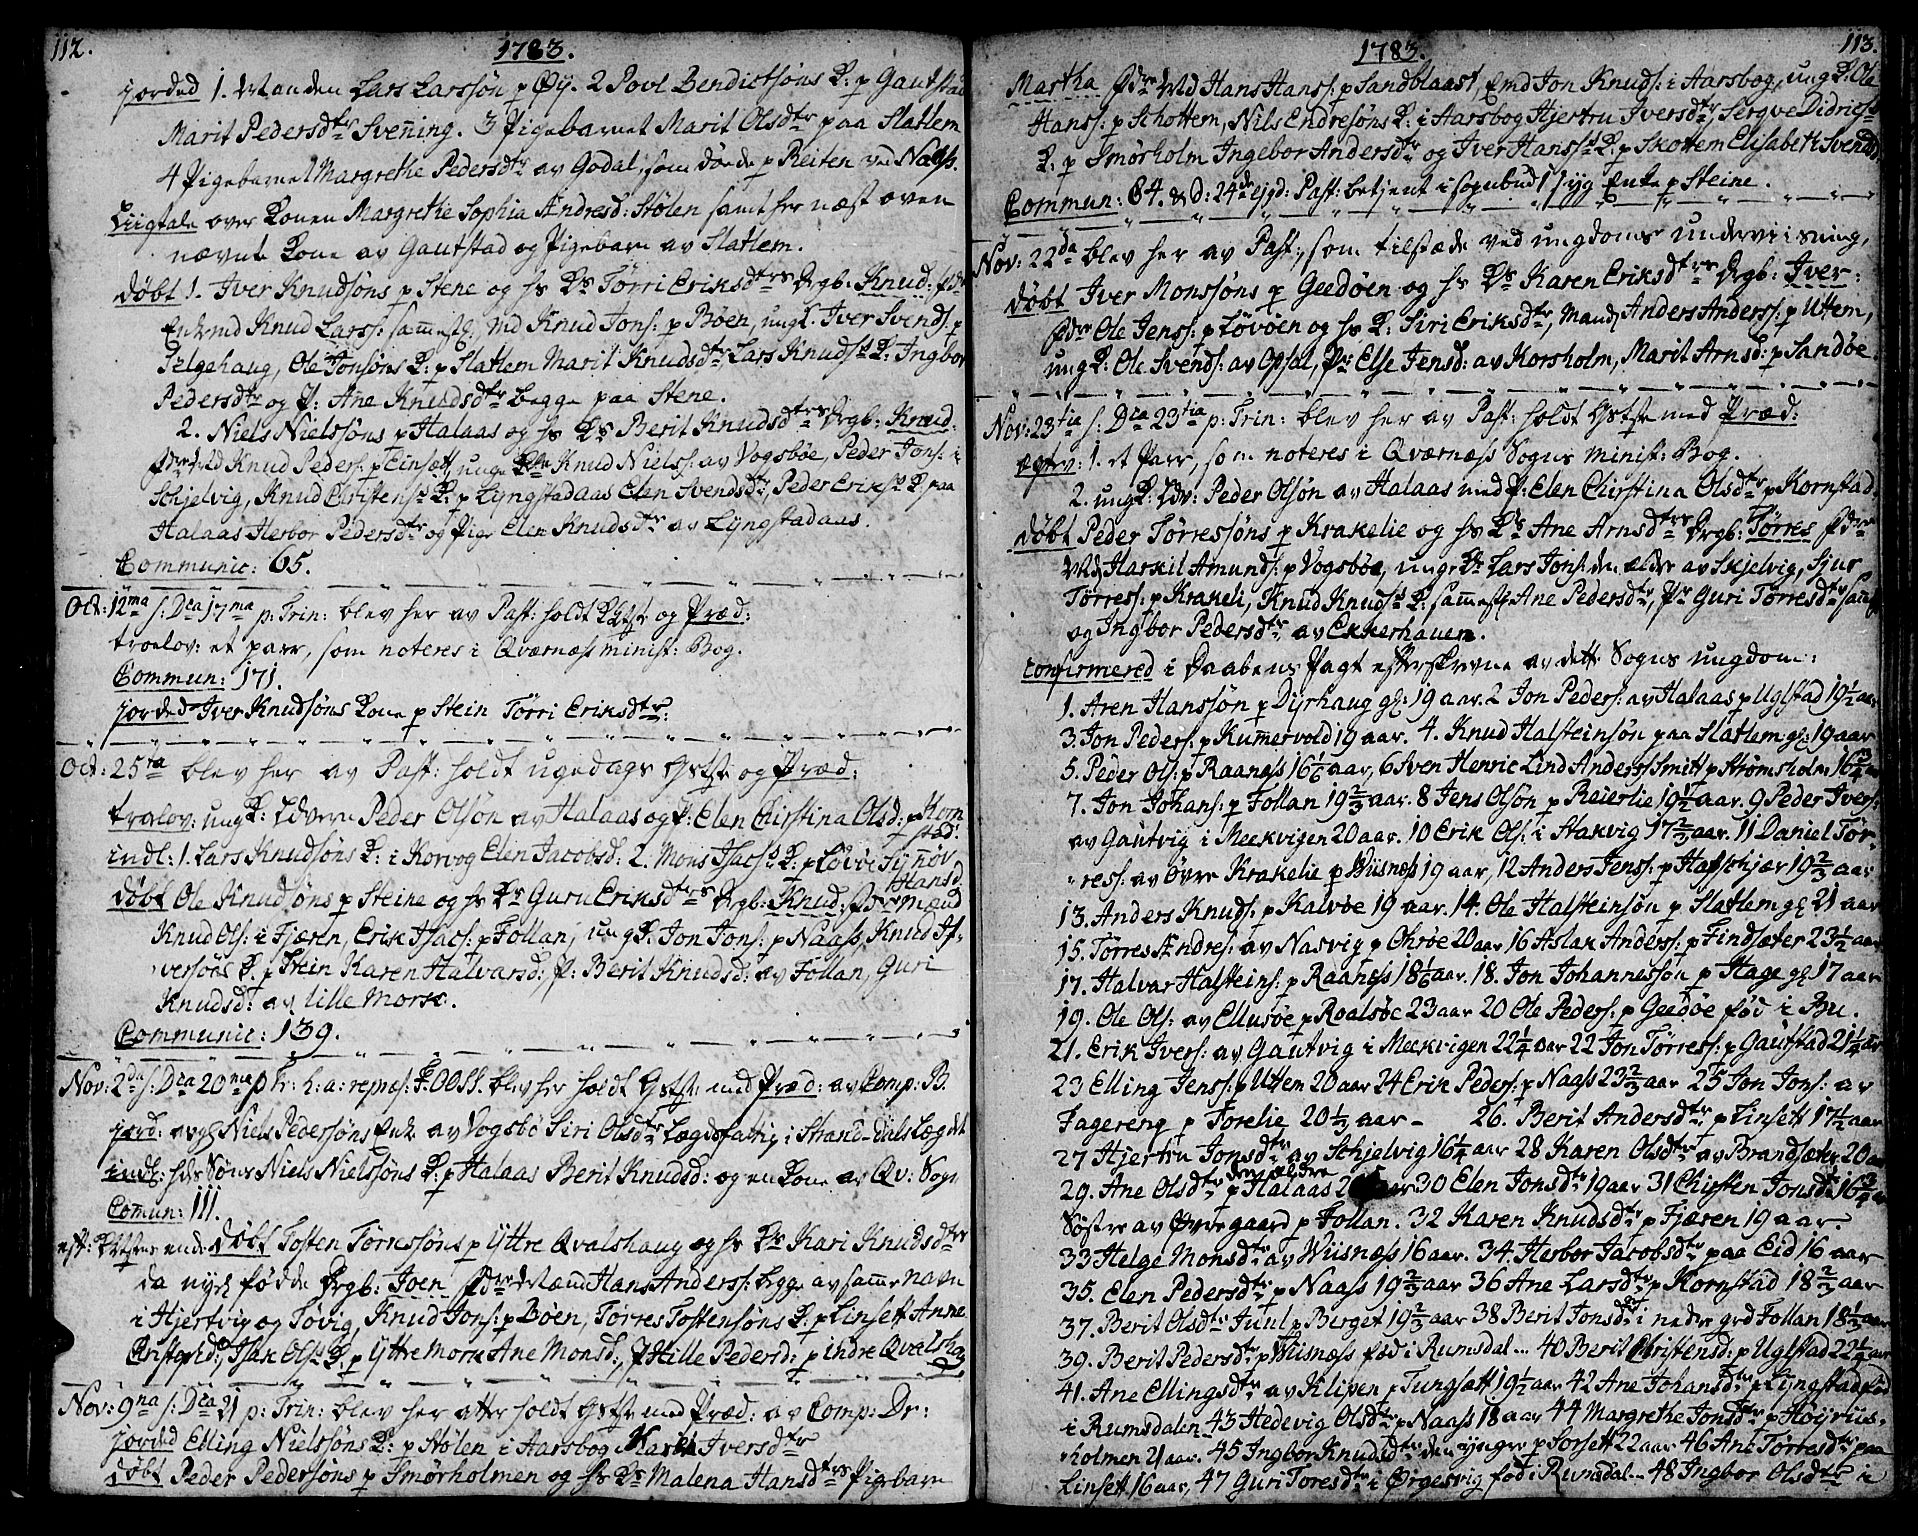 112.
1783.
jorded 1. Manden Lars Larssøn p Øy. 2 Povl Bendictsøns K: p Gautstad
Marit Pedersdtr Svenning. 3 Pigebarnet Marit Olsdtr paa Slatlem
4 Pigebarnet Margrethe Pedersdtr av Godal, som døede p Reiten ved Naass.
Liigtale over Konen Margrethe Sophia Andresd: Stølen samt her næst oven
nævnte Kone av Gautstad og Pigebarn av Slatlem.
døbt 1. Iver Knudsøns p Stene og hs Ks Tørri Eriksdtrs Drgb: Knud: fdr
Enkemd Knud Larss: sammestd, Md Knud Jons: p Bøen, ungk. Iver Svends: p
Helgehaug, Ole Jonsøns K: p Slatlem Marit Knudsdtr, Lars Knudss K: Ingbor
Pedersdtr og P: Ane Knudsdtr begge paa Stene.
2. Niels Nielsøns p Halaas og hs Ks Berit Knudsdtrs Drgb: Knud.
fdr Md Knud Peders: p Einset, unge Kle Knud Niels: av Vogsbøe, Peder Jons: i
Schjelvig, Knud Christenss K: p Lyngstadaas Elen Svendsdtr, Peder Erikss K: paa
Halaas Herbor Pedersdtr og Pige Elen Knudsdtr av Lyngstadaas.
Communic: 65.
Oct: 12ma s: Dca 17ma p: Trin: blev her av Past: holdt Gtste og Præd:
troelov: et parr, som noteres i Qværness minist: Bog.
Commun: 171.
jorded Iver Knudsøns Kone p Stein Tørri Eriksdtr:
Oct: 25ta blev her av Past: holdt ugedags Gtste og Præd:
trolov: ungk: Edvern Peder Olsøn av Halaas og P: Elen Chirstina Olsd: p Korn
stad.
indl: 1. Lars Knudsøns K: i Korvog Elen Jacobsd: 2. Mons Isacss K: p Løvøe Synnøv
Hansd.
døbt Ole Knudsøns p Steine og hs Ks Guru Eriksdtrs Drgb: Knud, fdr mænd
Knud Ols: i Fjæren, Erik Isacs: p Follan, ungk. Jon Jons: p Naass, Knud If-
versøns K. p Stein Karen Halvarsd: P: Berit Knudsd: av Follan, Guri
Knudsd: av lille Mork.
Communic: 139.
Nov: 2da s: Dca 20ma p Tr: h: a: repræs: F: OOSS. blev her holdt Gtste med Præd: av Comp: B.
jord: avgl Niels Pedersøns Enk av Vogsbø Siri Olsdtr Lægdsfattig i Strand-dals Lægdet
indl: hds Søns Niels Nielsøns K. p Halaas Berit Knudsd: og en Kone av Qv: Sogn
Comun: 111.
eft: Gtstens ende døbt Tosten Tørressøns p Yttre Qvalshaug og hs Ks Kari Knudsdtrs
da nyl fødde Drgb: Joen fdr Mænd Hans Anderss: begge av samme navn
i Hjertvig og Tøvig, Knud Jons: p Bøen, Tørres Tostensøns K. p Linset Anne
Cristophd: Isak Olss K. p Yttre Mork Ane Monsd:, P Hille Pedersd: p indre Qvalshaug
Nov: 9na s: Dca 21 p: Trin: blev her atter holdt Gtste med Præd: av Comp: Dr:
jorded Elling Nielsøns K: p Stølen i Aarsbog Marit Iversdtr
døbt Peder Pedersøns p Smørholmen og hs Ks Malena Hansdtrs Pigebarn
113.
1783.
Martha fdr Md Hans Hans: p Sandblaast, Emd Jon Knuds: i Aarsbog, ungk. Ole
Hans: p Schottem, Nils Endresøns K: i Aarsbog Hjertru Iversdtr, Sergve Didrics
K. p Smørholm Ingebor Andersdtr og Iver Hanss K. p Skottem Elisabeth Svendsd
Commun: 84. & D: 24de ejsd: Past: betjent i sognebud 1 syg Enke p Steine.
Nov: 22da blev her av Past:, som tilstæde ved ungdoms underviisning,
døbt Iver Monssøns p Geedøen og hs Ks Karen Eriksdtrs Drgb: Iver:
fdr Ole Jens: p Løvøen og hs K: Siri Eriksdtr, Mand Anders Anders: p Uttem,
ungk: Ole Svends: av Opsal, Pr Else Jensd: av Korsholm, Marit Arnsd: p Sandøe
Nov: 23tia s: Dca 23tia p: Trin: blev her av Past: holdt Gtste med Præd:
ægtev: 1. et Parr, som noteres i Qværness Sogns minist: Bog.
2. ungk: Edv: Peder Olsøn av Halaas med P: Elen Chirstina Olsdtr p Kornstad
døbt Peder Tørressøns p Krakelie og hs Ks Ane Arnsdtrs Drgb: Tørres fdr
Md Harkil Amunds: p Vogsbøe, unge Kr Lars Jons: den ældre av Skjelvig, Sjur
Tørress: p Krakeli, Knud Knudss K: sammestd Ane Pedersdtr, Pr Guri Tørresdtr samst
og Ingbor Pedersdtr av Ekkerhauen.
Confirmered i Daabens Pagt efterskrevne av dette Sogns ungdom:
1. Aren Hanssøn p Dyrhaug gl: 19 aar. 2 Jon Peders: av Halaas p Uglstad 19½ aar
3. Jon Peders: p Kummervold 19 aar. 4. Knud Halsteinsøn paa Slatlem gl 19 aar
5. Peder Ols: p Raaness 16 1/6 aar, 6 Sven Henric Lind Anders Smitt p Strømsholm 16¾ aar
7. Jon Johans: p Follan 19⅔ aar. 8 Jens Olsøn p Reierlie 19½ aar. 9 Peder Ivers:
av Gautvig i Meekvigen 20 aar. 10 Erik Ols: i Stakvig 17⅔ aar. 11 Daniel Tør-
res: av Øvre Krakelie p Wiisness 19 aar, 12 Anders Jens: p Hasschjær 19⅔ aar
13. Anders Knuds: p Kalvøe 19 aar. 14. Ole Halsteinsøn p Slatlem gl 21 aar
15. Tørres Andres: av Nasvig p Ohrøe 20 aar 16 Aslak Anders: p Findsæter 23½ aar
17. Halvar Halsteins: p Raaness 18 1/6 aar. 18. Jon Johannessøn p Hage gl 17 aar
19. Ole Ols: av Ellusøe p Roalsøe 23 aar 20 Ole Peders: p Geedøe fød i Bu.
21. Erik Ivers: av Gautvig i Meekvigen 22¼ aar 22 Jon Tørress: p Gautstad 21¼ aar
23 Elling Jens: p Uttem 20 aar 24 Erik Peders: p Naass 23⅔ aar 25 Jon Jons: av
Fagereng p Forelie 20½ aar - 26. Berit Andersdtr p Linsett 17½ aar
27 Hjertru Jonsdtr av Schjelvig 16¼ aar 28 Karen Olsdtr av Brandsæter 20 aar
29. Ane Olsdtr den ældre p Halaas aar 30 Elen Jonsdtr 19 aar 31 Chirsten Jonsdtr 16¾ aar
Søstre av Øvregaard p Follan. 32 Karen Knudsdtr p Fjæren 19 aar.
33 Helge Monsdtr av Wiisness 16 aar. 34. Herbor Jacobsdtr paa Eid 16 aar
35. Elen Pedersdtr p Naass 19⅔ aar 36 Ane Larsdtr p Kornstad 18⅔ aar
37. Berit Olsdtr Juul p Berget 19⅔ aar 38 Berit Jonsdtr i nedre grd Follan 18½ aar
39. Berit Pedersdtr p Wiisness fød i Rumsdal... 40 Berit Christensd: p Uglstad 22¼ aar
41. Ane Ellingsdtr av Klipen p Tungsett 19½ aar 42 Ane Johansdtr p Lyngstad fød
i Rumsdalen 43 Hedevig Olsdtr p Naass 18 aar 44 Margrethe Jonsdtr p Høyrius-
holmen 21 aar. 45 Ingbor Knudsdtr den yngre p Sorsett 22 aar 46 Ane Tørresdtr paa
Linsett 16 aar, 47 Guri Toresdtr i Ørgesvig fød i Rumsdal... 48 Ingbor Olsdtr i